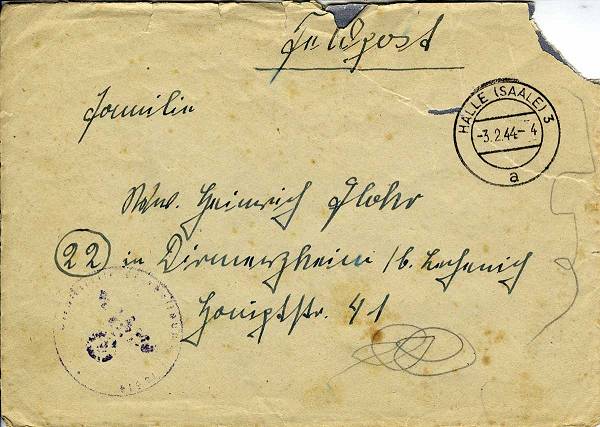 Feldpost
Familie
HALLE (SAALE) 3
-3.2.44-4
a
Heinrich Flohr
22 in Dirmerzheim / b. Lechenich
Hauptstr. 41